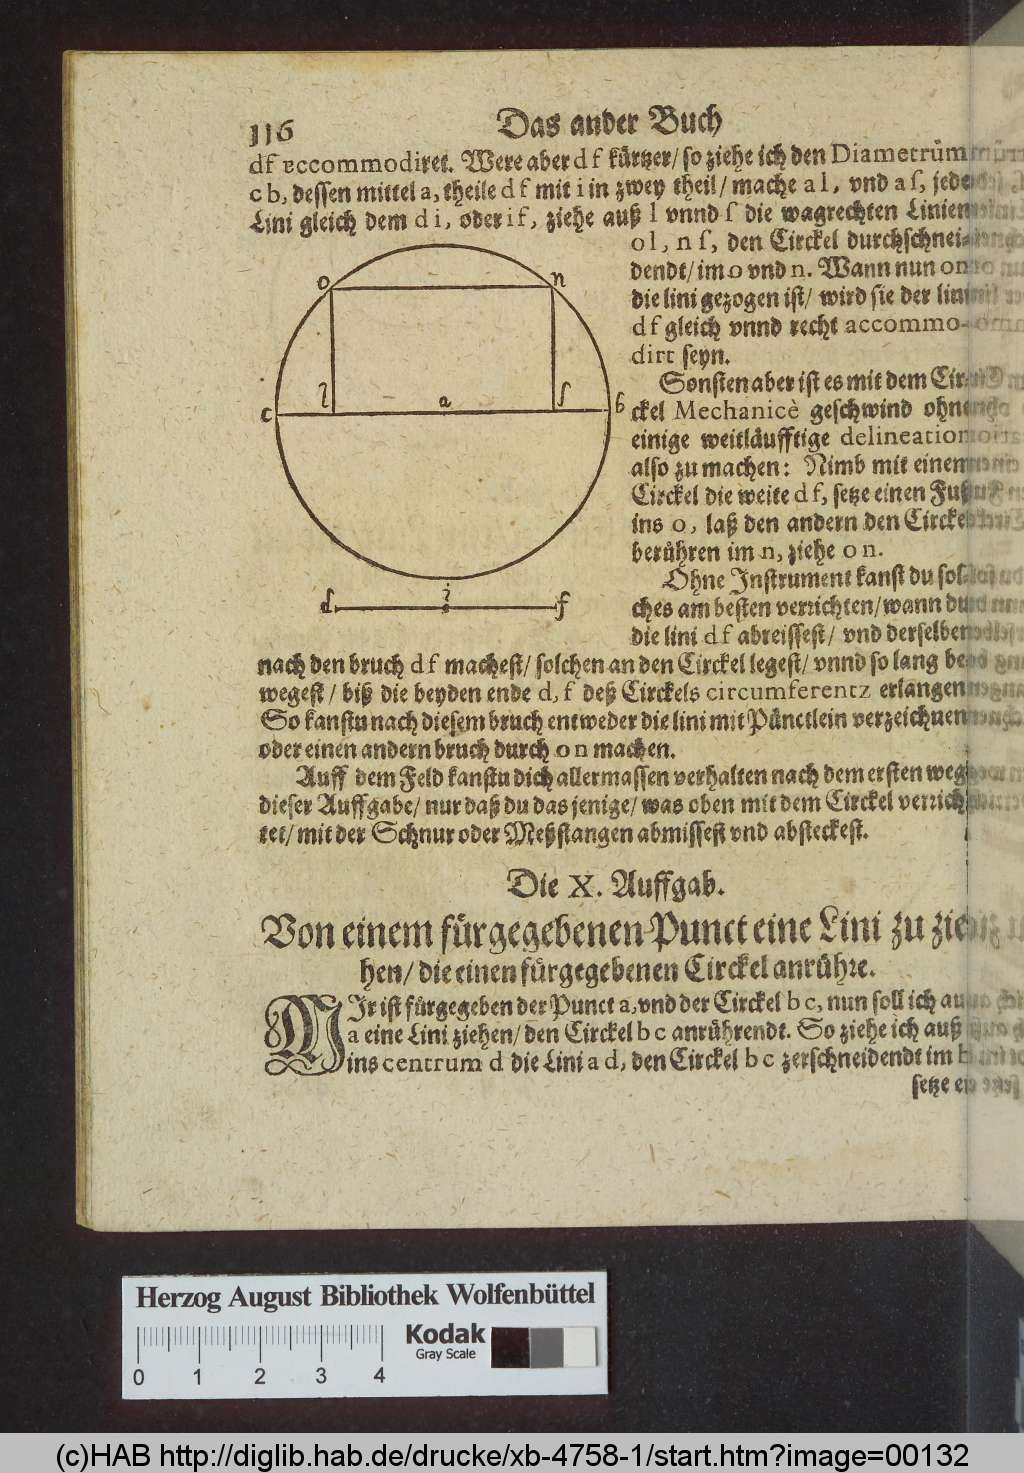 116 Das ander Buch
df accommodiret. Were aber df kürtzer/ so ziehe ich den Diametrům
c b, dessen mittel a, theile d f mit i in zwey theil/ mache a l, vnd a s, jede
Lini gleich dem d i, oder i f, ziehe auß l vnnd s die wagrechten Linien
o l, n s, den Circkel durchschnei-
dendt/ im o vnd n. Wann nun on
die lini gezogen ist/ wird sie der lini
d f gleich vnnd recht accommo-
dirt seyn.
Sonsten aber ist es mit dem Cir-
ckel Mechanicè geschwind ohne
einige weitläufftige delineation
also zu machen: Nimb mit einem
Circkel die weite d f, setze einen Fuß
ins o, laß den andern den Circkel
berühren im n, ziehe o n.
Ohne Instrument kanst du sol-
ches am besten verrichten/ wann du
die lini d f abreissest/ vnd derselben
o n
l a s
c b
i
d f
nach den bruch d f machest/ solchen an den Circkel legest/ vnnd so lang be
wegest/ biß die beyden ende d, f deß Circkels circumferentz erlangen
So kanstu nach diesem bruch entweder die lini mit Pünctlein verzeichnen
oder einen andern bruch durch o n machen.
Auff dem Feld kanstu dich allermassen verhalten nach dem ersten weg
dieser Auffgabe/ nur daß du das jenige/ was oben mit dem Circkel verrich
tet/ mit der Schnur oder Meßstangen abmissest vnd absteckest.
Die X. Auffgab.
Von einem fürgegebenen Punct eine Lini zu zie
hen/ die einen fürgegebenen Circkel anrühre.
MIr ist fürgegeben der Punct a, vnd der Circkel b c, nun soll ich auß
a eine Lini ziehen/ den Circkel b c anrührendt. So ziehe ich auß
ins centrum d die Lini a d, den Circkel b c zerschneidendt im b
setze
Herzog August Bibliothek Wolfenbüttel
Kodak
Gray Scale
0 1 2 3 4
(c)HAB http://diglib.hab.de/drucke/xb-4758-1/start.htm?image=00132